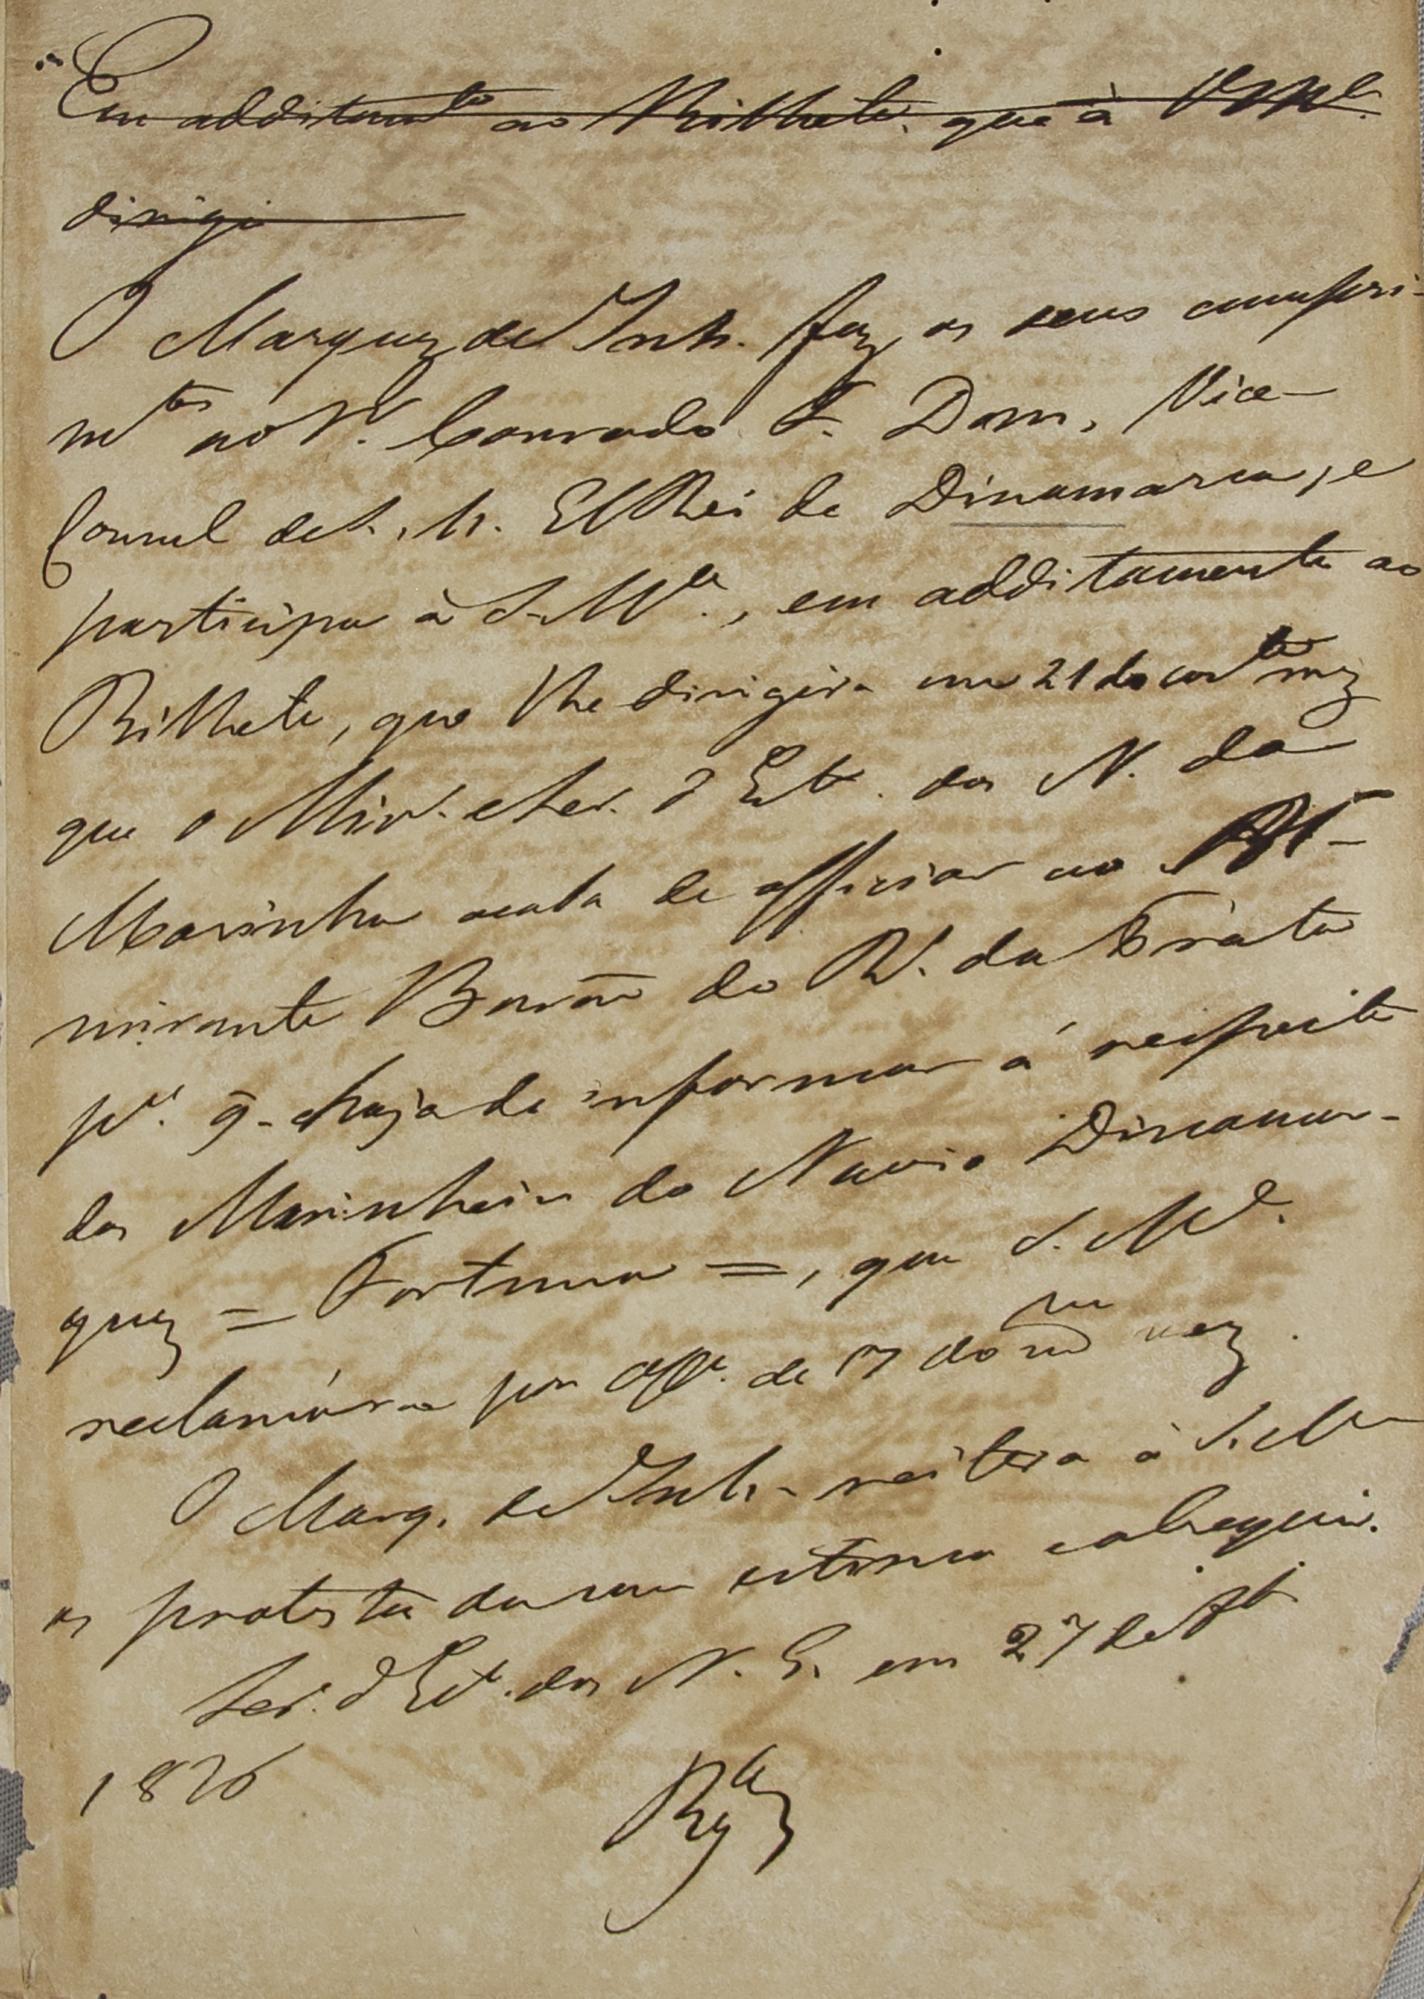 Em additam.to ao Bilhete, que à V Mce.
dirigi
O Marquez de Inh. faz os seus cumpri-
m.tos ao S. Conrado F. Dom, Vice-
Consul de S. M. ElRei de Dinamarca, e
participa à S. M.ce, em additamento ao
Bilhete, que lhe dirigira em 21 do cor.te mez
que o Min. e Secr. d'Est. dos N. da
Marinha acaba de officiar ao Al-
mirante Barão do R. da Prata
p.a q. haja de informar á respeito
dos Marinheiros do Navio Dinamar-
quez = Fortuna =, que S. M.ce
reclamára por Off.o de 17 do m.mo mez.
O Marq. de Inh. reitera à S. M.ce
os protestos da sua estima e obsequio.
Secr. d'Est. dos N. E. em 27 de
1826